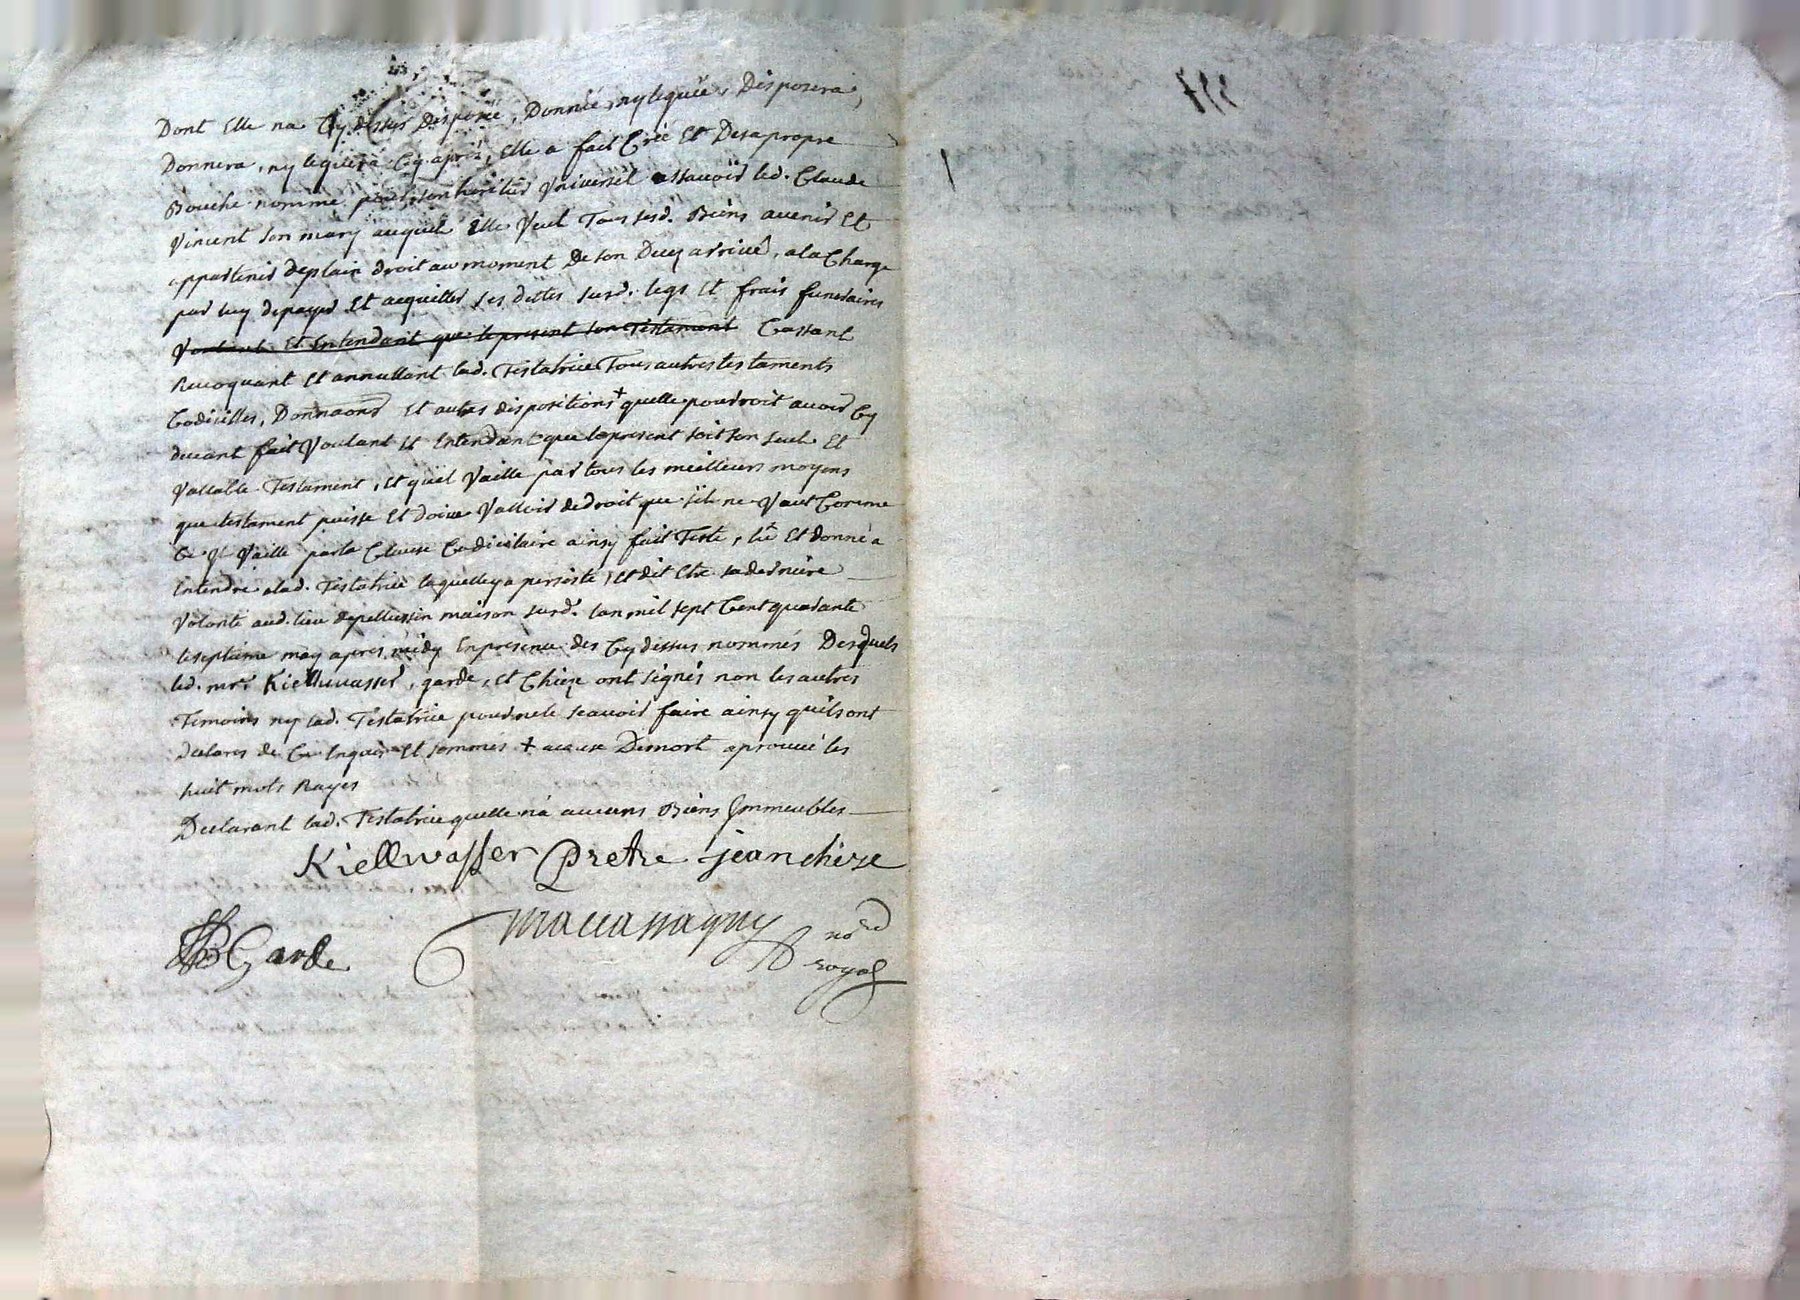 Dont Elle na Cy dessus Disposée, Donnée, ny leguée, Disposera,
Donnera, ny leguera Cy apres, Elle a fait Créé Et Desa propre
Bouche nommé pour son heritier Vniversel assavoir led. Claude
Vincent son mary auquel Elle Veut Tous sesd. Biens avenir Et
appartenir deplain droit au moment De son Decez arrivé, ala Charge
par luy depayer Et acquitter ses dettes susd. legs Et frais funeraires
Voulant Et Entendant que lepresent son Testament Cassant
Revoquant Et annullant lad. Testatrice Tous autres testaments
Codicilles, Donnaons Et autres dispositions + quelle pourroit avoir Cy
devant fait Voulant Et Entendant que lepresent soit son seul Et
Vallable Testament, Et quil Vaille par tous les meilleurs moyens
que testament puisse Et doive Valloir de droit que sil ne Vaut Comme
Ce Vaille par la Clause Codicillaire ainsy fait Testé, lû Et donné a
Entendre alad. Testatrice laquelle y a persisté, Et dit Etre sa derniere
Volonté aud. lieu depellussin maison susd. lan mil sept Cent quarante
leseptieme may apres midy Enpresence des Cy dessus nommés Desquels
led. mre. Kiellwasser, garde, Et Chieze ont signés non les autres
Temoins ny lad. Testatrice pour ne le scavoir faire ainsy quils ont
declarés de Ce Enquis Et sommés + acause Demort aprouvé les
huit mots Rayes
Declarant lad. Testatrice quelle na aucuns Biens Immeubles
Kiellwasser Pretre jean chieze
Garde
Maccassagny no.re
royal